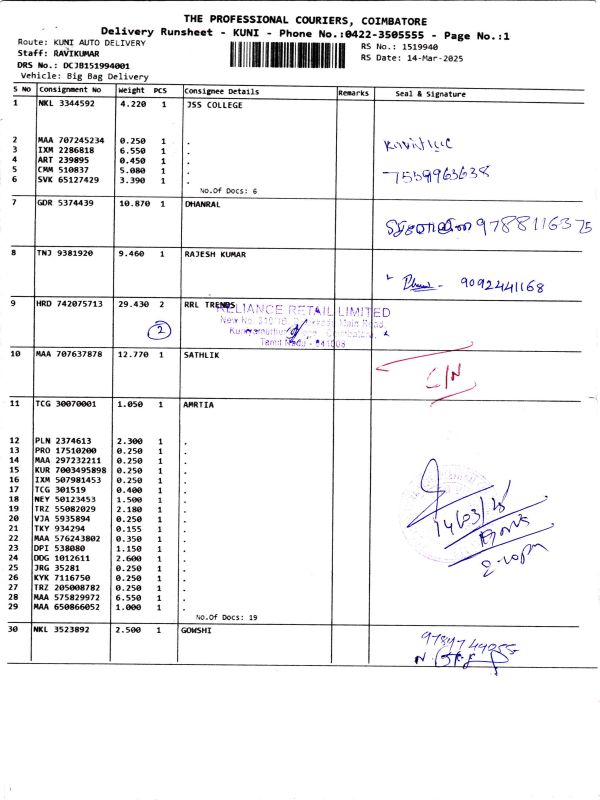 THE PROFESSIONAL COURIERS, COIMBATORE
Delivery Runsheet - KUNI - Phone No.:0422-3505555 - Page No.:1
Route: KUNI AUTO DELIVERY
RS No.: 1519940
Staff: RAVIKUMAR
RS Date: 14-Mar-2025
DRS No.: DCJB151994001
Vehicle: Big Bag Delivery
S No Consignment No Weight PCS Consignee Details Remarks Seal & Signature
1 NKL 3344592 4.220 1 JSS COLLEGE
2 MAA 707245234 0.250 1 .
3 IXM 2286818 6.550 1 .
4 ART 239895 0.450 1 .
5 CMM 510837 5.080 1 .
6 SVK 65127429 3.390 1 .
7559963638
No.Of Docs: 6
7 GDR 5374439 10.870 1 DHANRAL
9788116375
8 TNJ 9381920 9.460 1 RAJESH KUMAR
9092441168
9 HRD 742075713 29.430 2 RRL TRENDS
RELIANCE RETAIL LIMITED
2
Tamil Nadu - 641008
10 MAA 707637878 12.770 1 SATHLIK
C/N
11 TCG 30070001 1.050 1 AMRTIA
12 PLN 2374613 2.300 1 .
13 PRO 17510200 0.250 1 .
14 MAA 297232211 0.250 1 .
15 KUR 7003495898 0.250 1 .
16 IXM 507981453 0.250 1 .
17 TCG 301519 0.400 1 .
18 NEY 50123453 1.500 1 .
19 TRZ 55082029 2.180 1 .
20 VJA 5935894 0.250 1 .
21 TKY 934294 0.155 1 .
22 MAA 576243802 0.350 1 .
23 DPI 538080 1.150 1 .
24 DDG 1012611 2.600 1 .
25 JRG 35281 0.250 1 .
26 KYK 7116750 0.250 1 .
27 TRZ 205008782 0.250 1 .
28 MAA 575829972 6.550 1 .
29 MAA 650866052 1.000 1 .
14/03/25
2-10pm
No.Of Docs: 19
30 NKL 3523892 2.500 1 GOWSHI